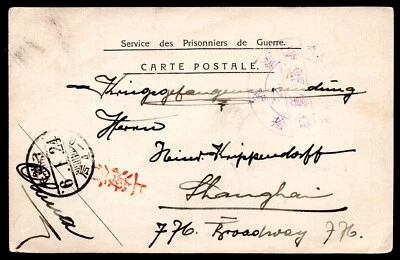 Service des Prisonniers de Guerre.
CARTE POSTALE.
Kriegsgefangenensendung
Herrn
Heinr. Krippendorff
Shanghai
776. Broadway 776.